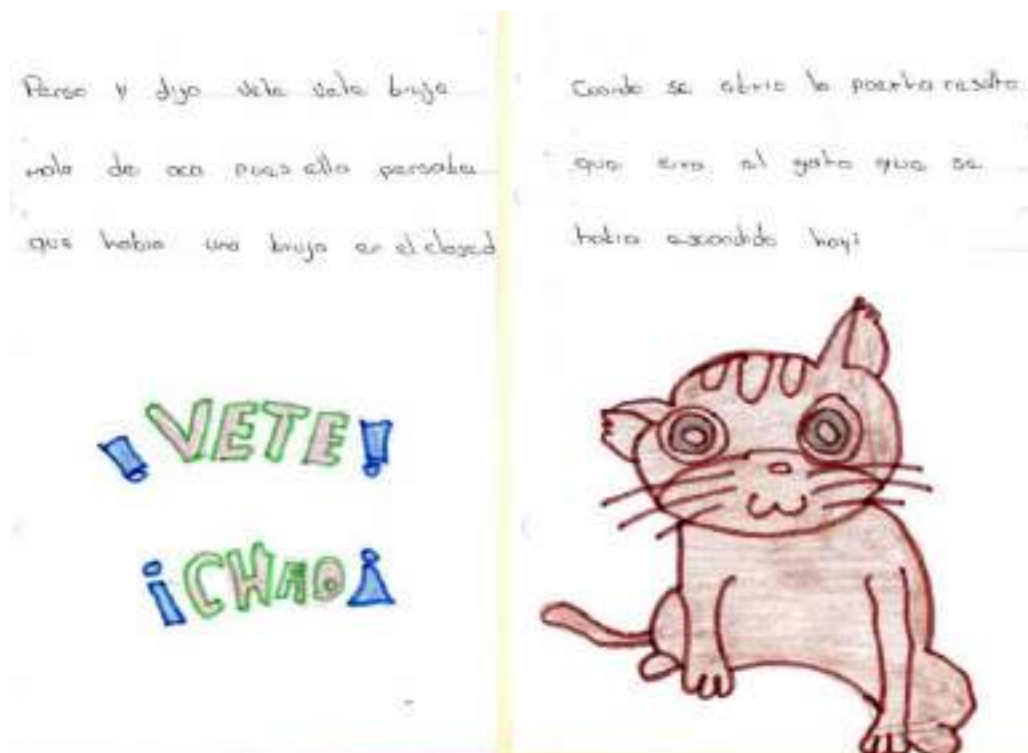 Penso y dijo vete vete bruja
mala de aca pues ella pensaba
que habia una bruja en el closed
¡VETE!
¡CHAO!
Cuando se abrio la puerta resulto
que era el gato que se
habia escondido hayi